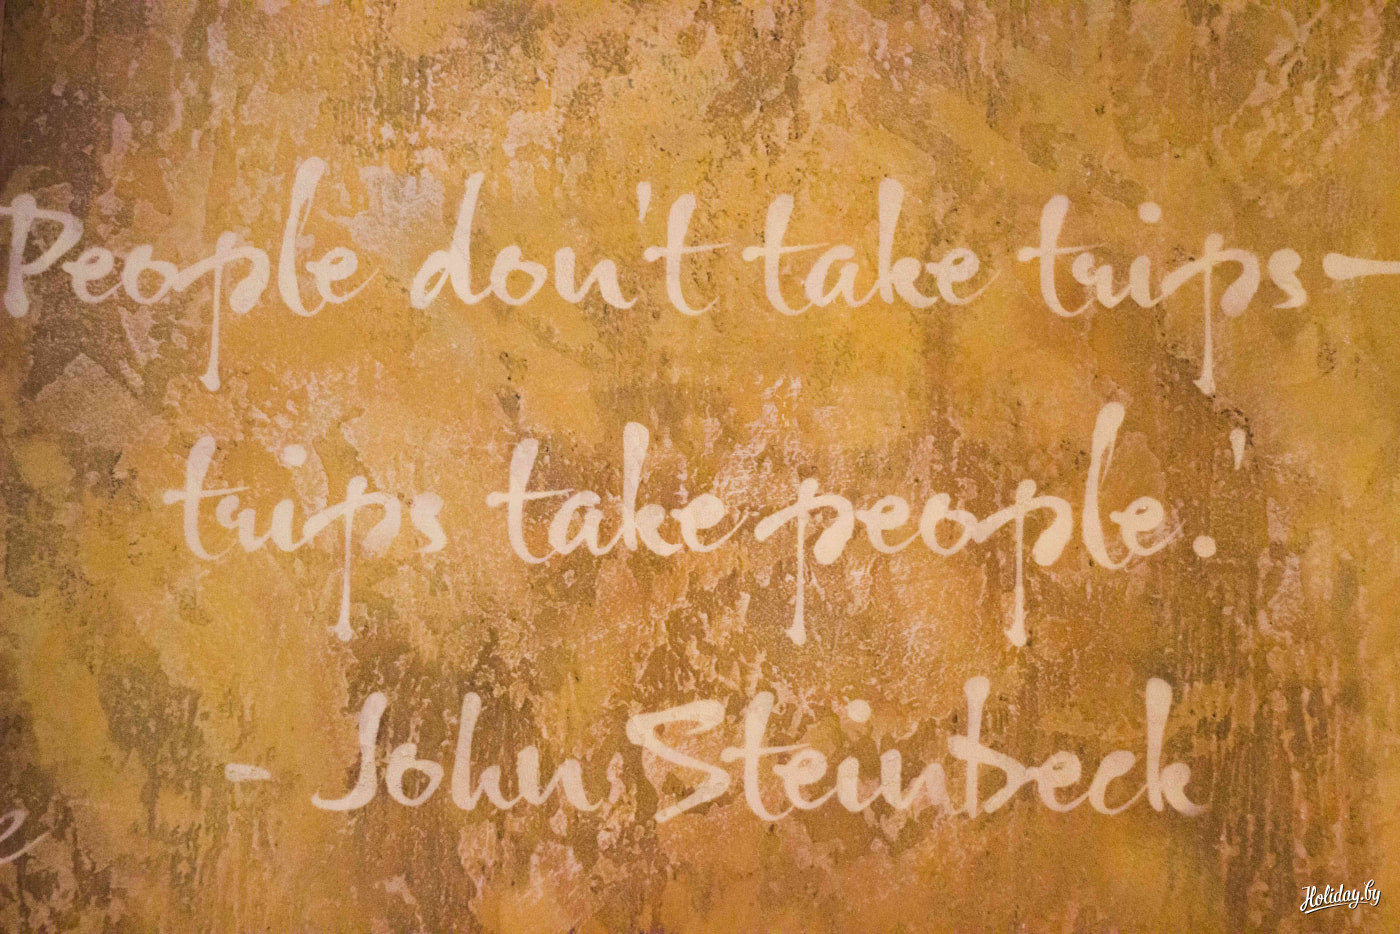 People don't take trips—
trips take people.'
- John Steinbeck
e
Holiday.by